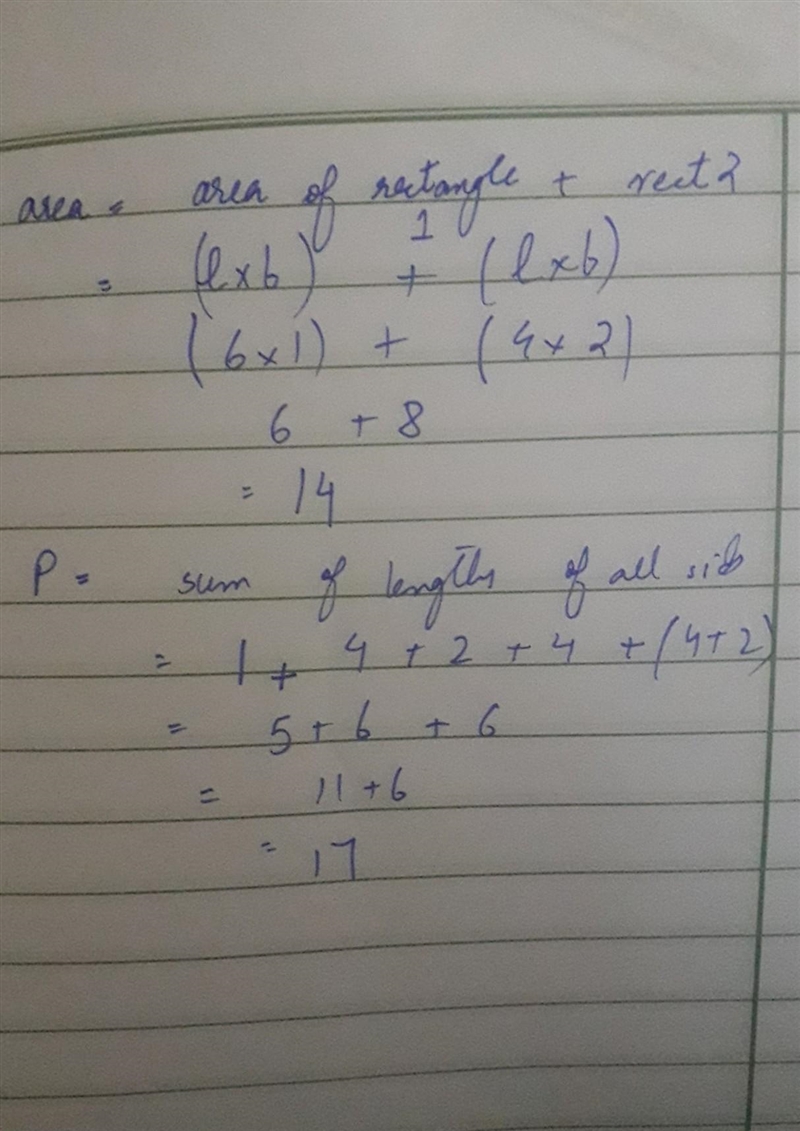 area = area of rectangle + rect 2
1
= (l×b) + (l×b)
(6×1) + (4×2)
6 + 8
= 14
P = sum of lengths of all sids
= 1 + 4 + 2 + 4 + (4+2)
= 5 + 6 + 6
= 11 + 6
= 17